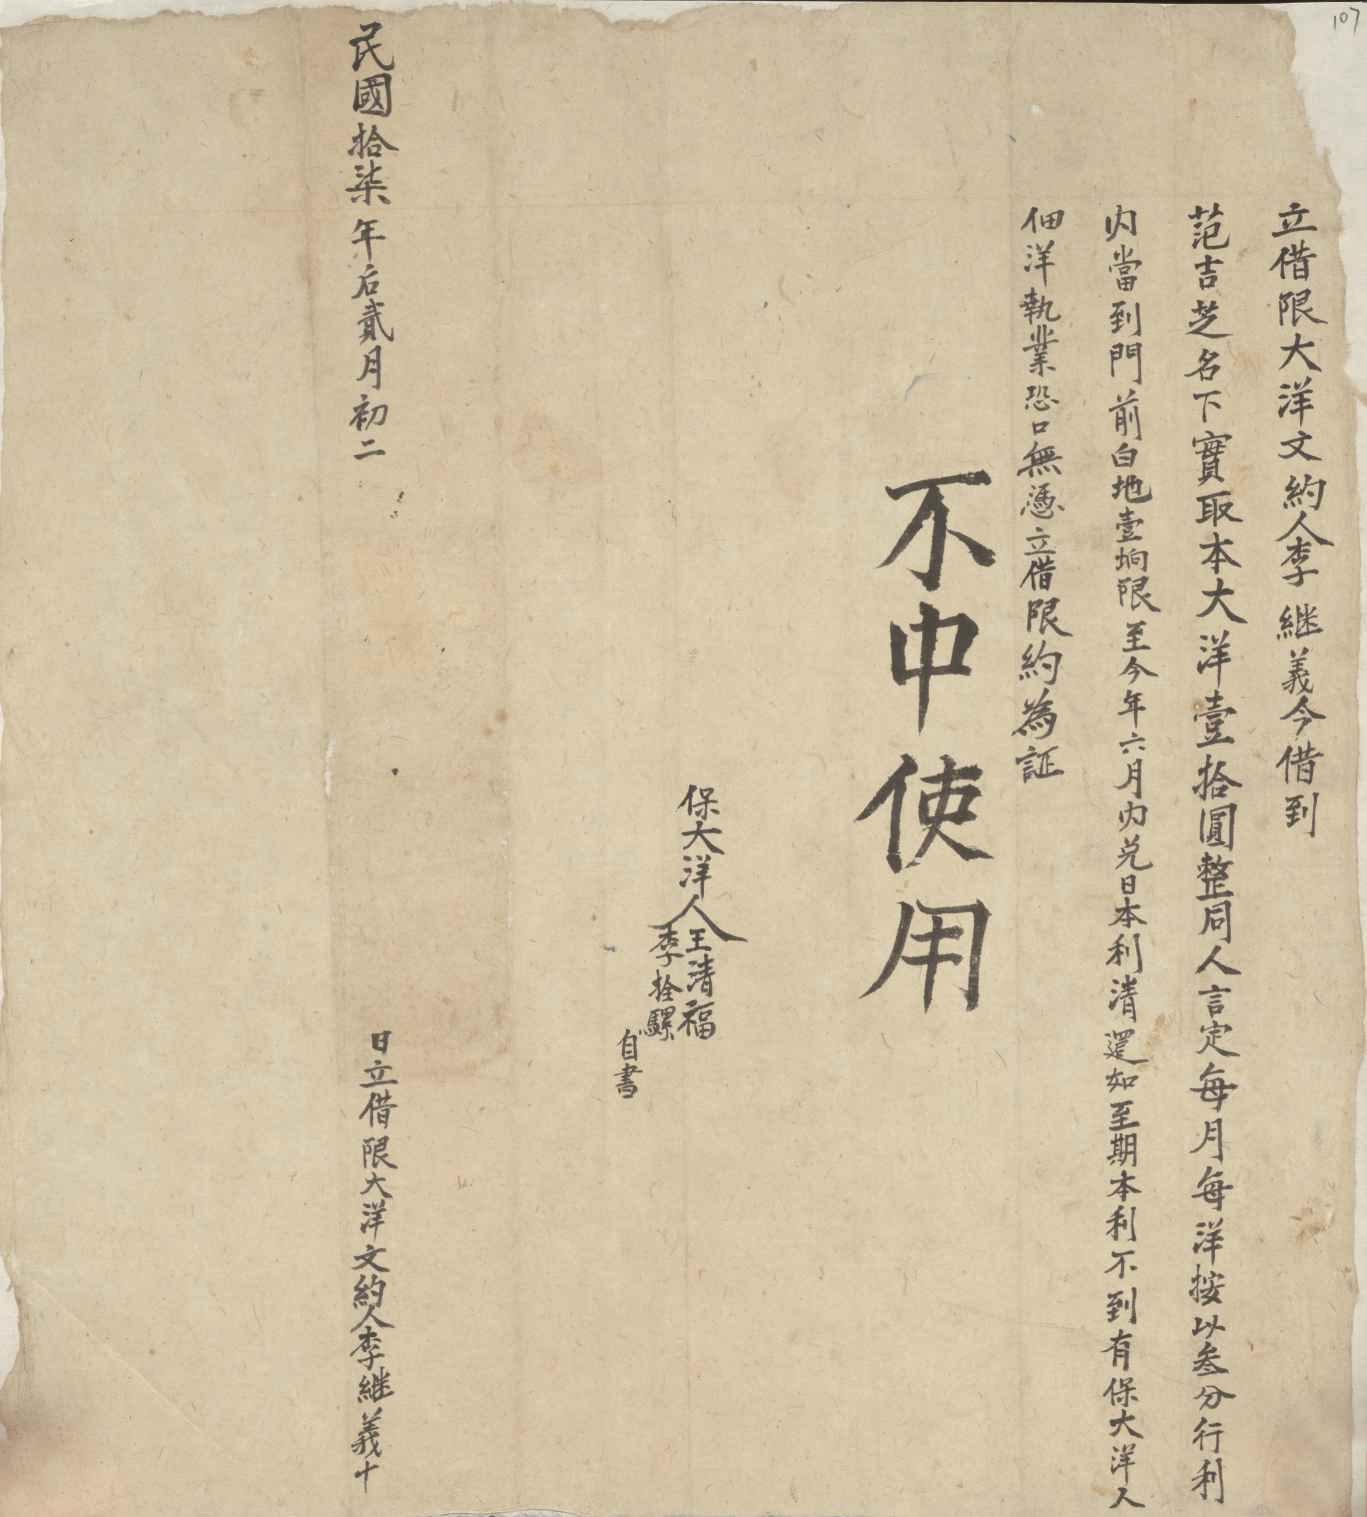 107
立借限大洋文約人李継義今借到
范吉芝名下實取本大洋壹拾圓整同人言定每月每洋按以叁分行利
内當到門前白地壹垧限至今年六月内兑日本利清還如至期本利不到有保大洋人
佃洋執業恐口無憑立借限約為証
不中使用
保大洋人王清福
李拴騾
自書
民國拾柒年后貳月初二
日立借限大洋文約人李継義十